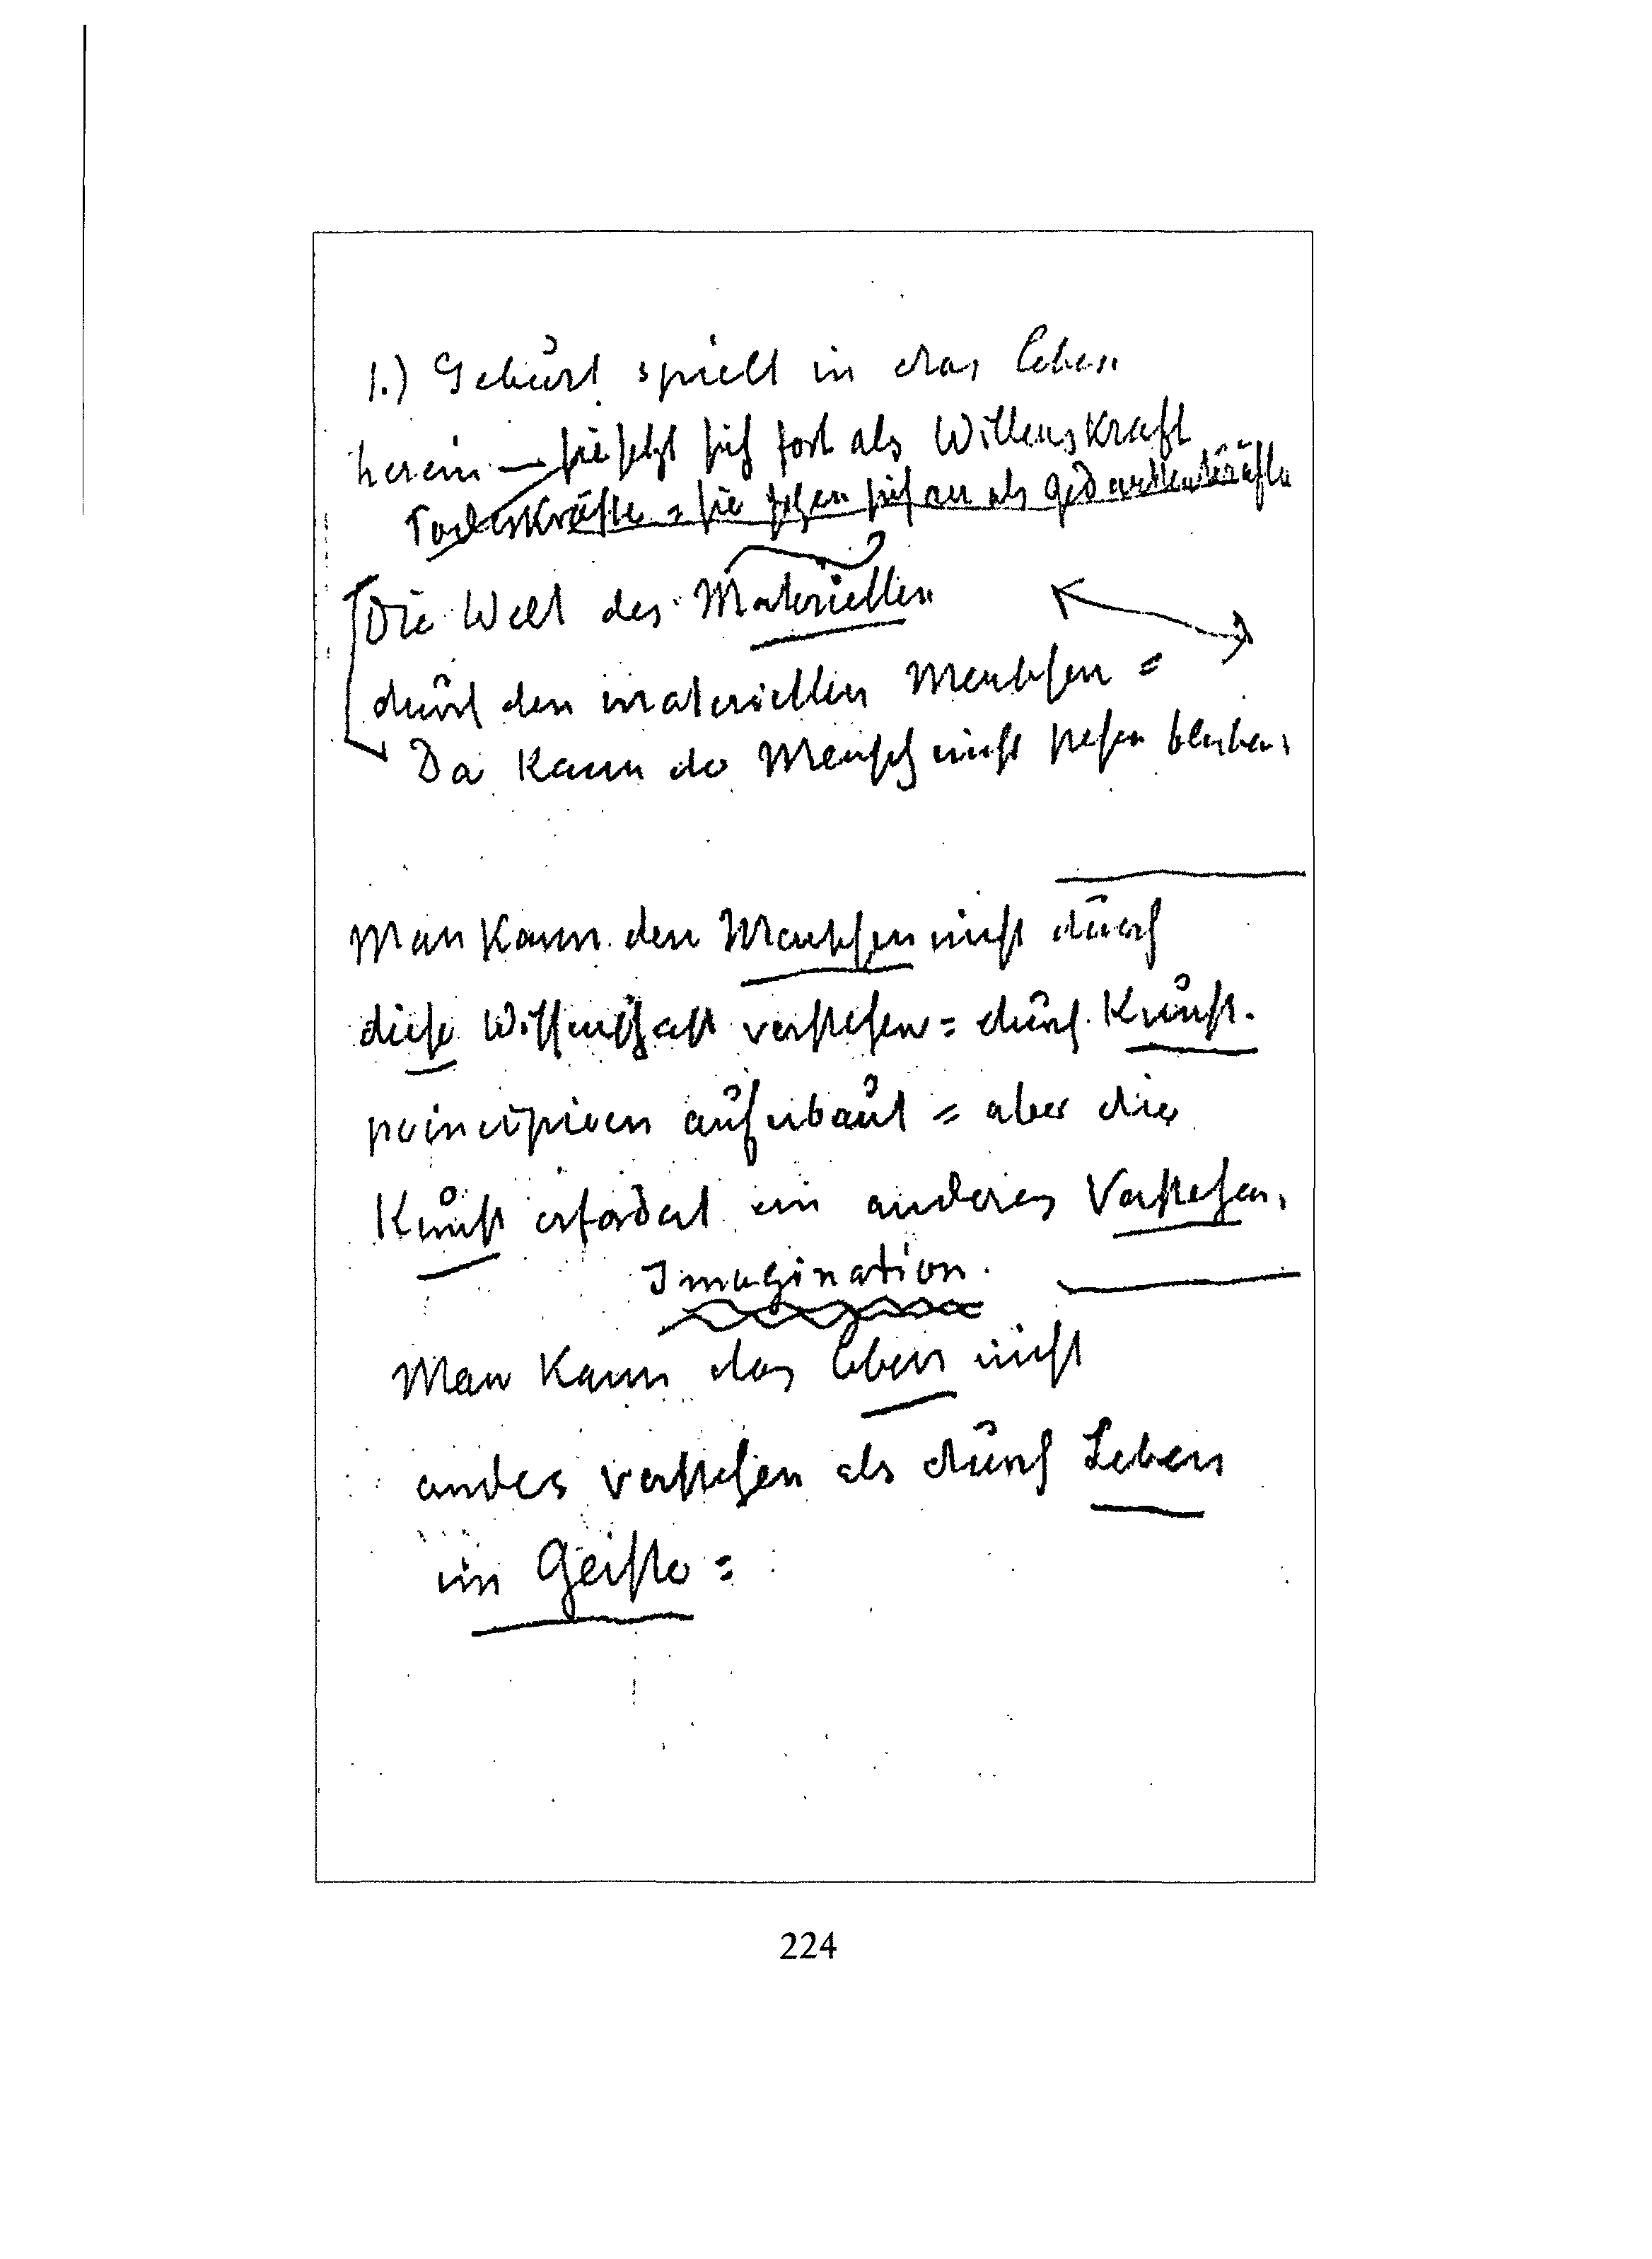 1.) Geburt spielt in das Leben
herein — sie setzt sich fort als Willenskraft
Todeskräfte = sie setzen sich an als Gedankenkräfte
Die Welt des Materiellen
durch den materiellen Menschen =
Da kann der Mensch nicht stehen bleiben,
Man kann den Menschen nicht durch
diese Wissenschaft verstehen = durch Kunst.
principien auferbaut = aber die
Kunst erfordert ein anderes Verstehen,
Imagination.
Man kann das Leben nicht
anders verstehen als durch Leben
im Geiste =
224